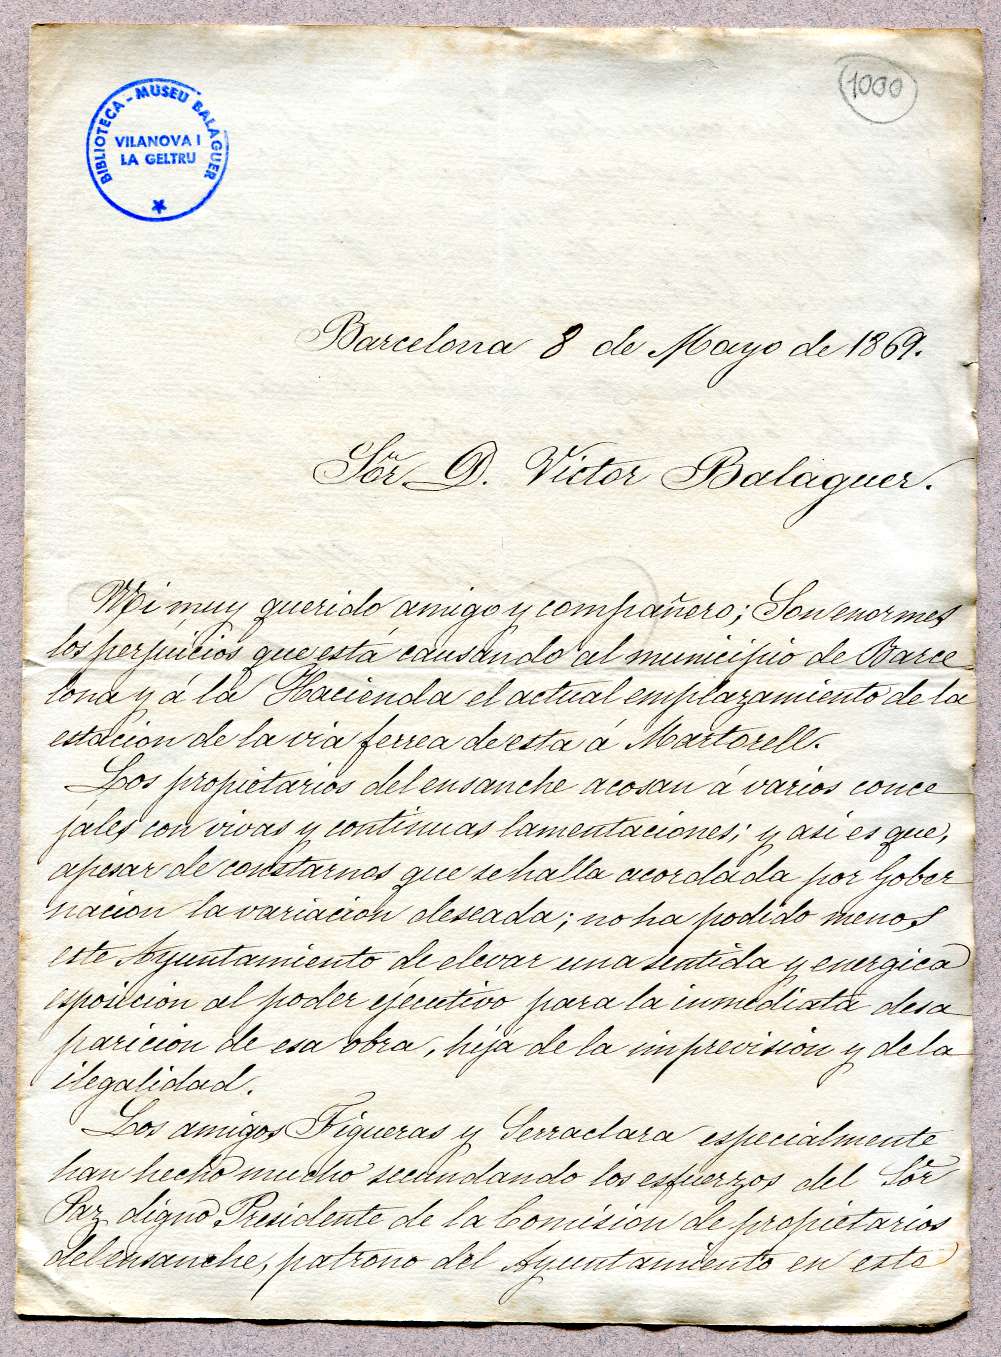 BIBLIOTECA - MUSEU BALAGUER
VILANOVA I
LA GELTRU
1000
Barcelona 8 de Mayo de 1869.
Sõr D. Victor Balaguer.
Mi muy querido amigo y compañero; Son enormes
los perjuicios que está causando al municipio de Barce-
lona y á la Hacienda el actual emplazamiento de la
estacion de la via ferrea de esta á Martorell.
Los propietarios del ensanche acosan á varios conce
jales con vivas y continuas lamentaciones; y asi es que,
apesar de constarnos que se halla acordada por Gober
nacion la variacion deseada; no ha podido menos
este Ayuntamiento de elevar una sentida y energica
esposicion al poder ejecutivo para la inmediata desa
paricion de esa obra, hija de la imprevision y de la
ilegalidad.
Los amigos Figueras y Serraclara especialmente
han hecho mucho secundando los esfuerzos del Sõr
Paz digno Presidente de la Comision de propietarios
del ensanche, patrono del Ayuntamiento en este